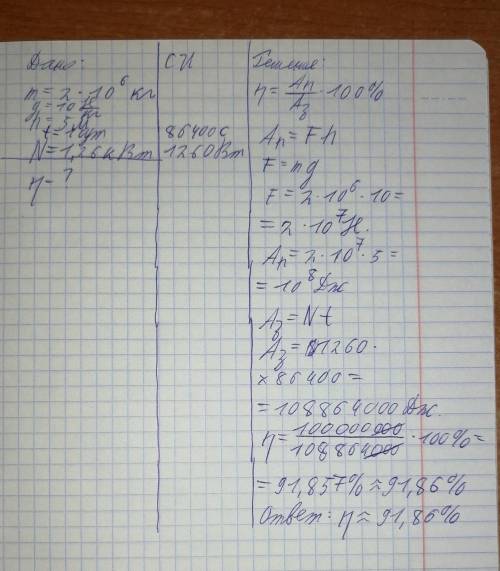 Дано:
m = 2 · 10⁶ кг
g = 10 Н/кг
h = 5 м
t = 1 сут
N = 1,26 кВт
η - ?
СИ
86400 с
1260 Вт
Решение:
η = Aп/Aз · 100%
Aп = Fh
F = mg
F = 2 · 10⁶ · 10 =
= 2 · 10⁷ Н.
Aп = 2 · 10⁷ · 5 =
= 10⁸ Дж
Aз = Nt
Aз = 1260 ·
× 86400 =
= 108864000 Дж.
η = 100000000/108864000 · 100% =
= 91,857% ≈ 91,86%
Ответ: η ≈ 91,86%